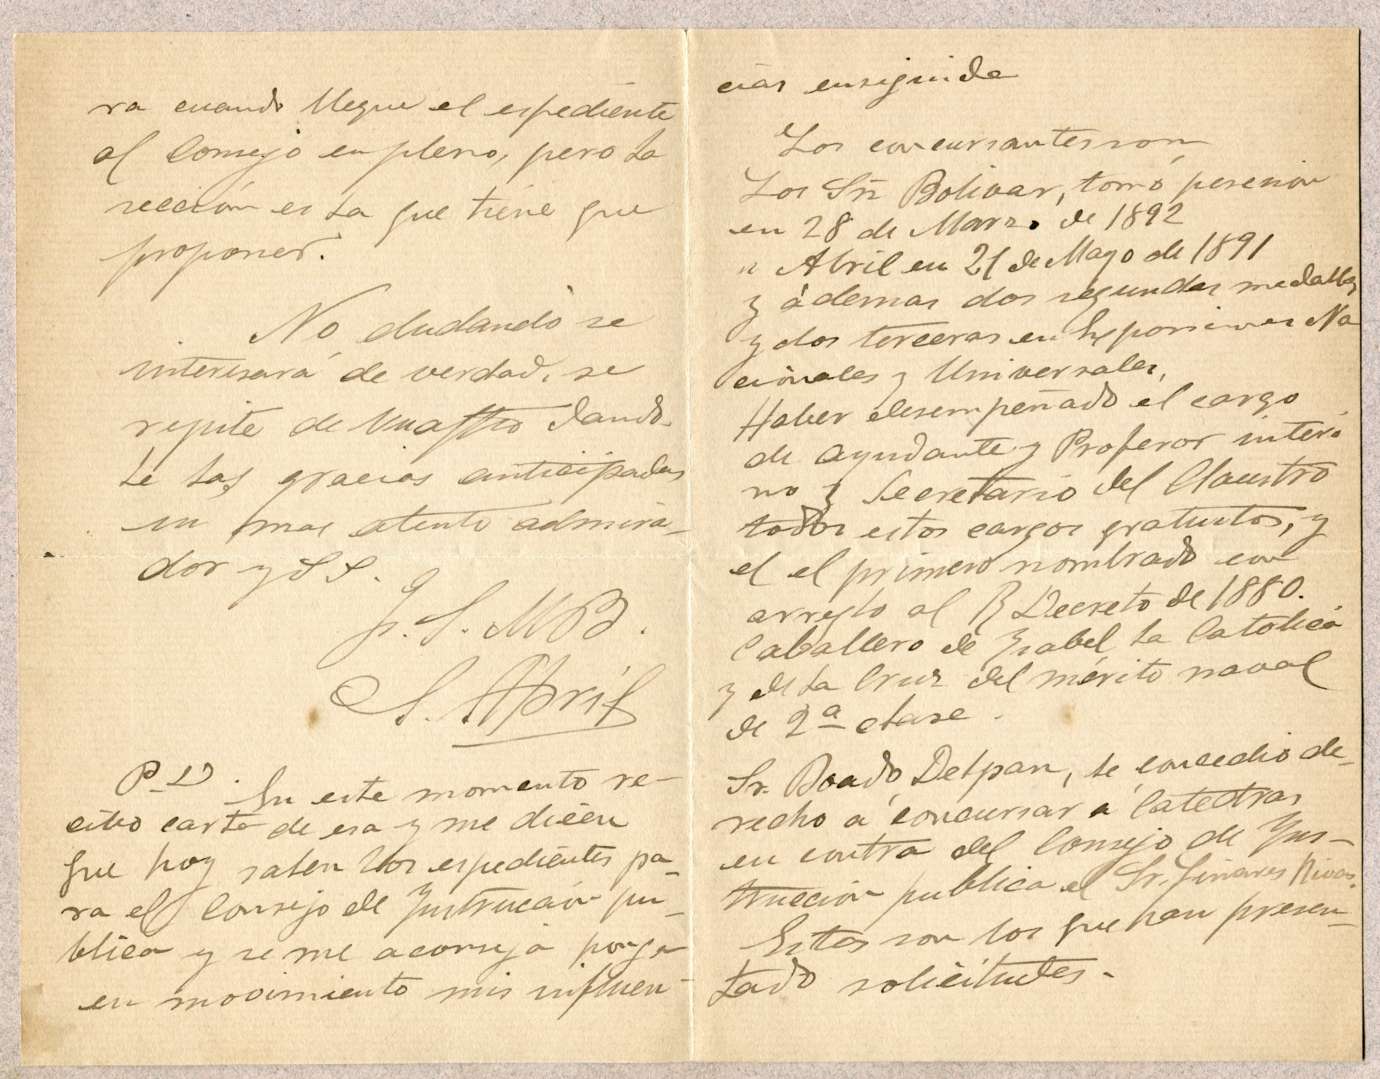 ra cuando llegue el espediente
al Consejo en pleno, pero la
sección es la que tiene que
proponer.
No dudando se
interesará de verdad, se
repite de Vuastro dando-
le las gracias anticipadas
su mas atento admira-
dor y S S.
Q. S. M B.
S. Abril
P. D. En este momento re-
cibo carta de esa y me dicen
que hoy salen los espedientes pa-
ra el Consejo de Ynstrucción pu-
blica y se me aconseja ponga
en movimiento mis influen-
cias enseguida
Los concursantes son
Los Sr. Bolivar, tomó posesion
en 28 de Marzo de 1892
" Abril en 21 de Mayo de 1891
y ádemas dos segundas medallas
y dos terceras en Exposiciones Na
cionales y Universales,
Haber desempeñado el cargo
de ayudante y Profesor interi
no y Secretario del Claustro
todos estos cargos gratuitos, y
el el primero nombrado con
arreglo al R Decreto de 1880.
Caballero de Ysabel la Católica
y de la Cruz del mérito naval
de 2ª clase.
Sr. Boado, Delpan, le concedio de-
recho á concursar á Catedras
en contra del Consejo de Yns-
trucción publica el Sr. Linares Rivas.
Estos son los que han presen-
tado solicitudes.